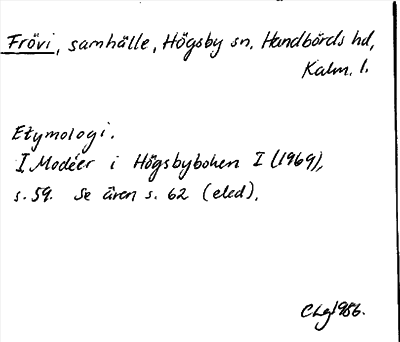 Frövi, samhälle, Högsby sn, Handbörds hd,
Kalm. l.
Etymologi.
I Modéer i Högsbyboken I (1969),
s. 59. Se även s. 62 (eled).
1986.